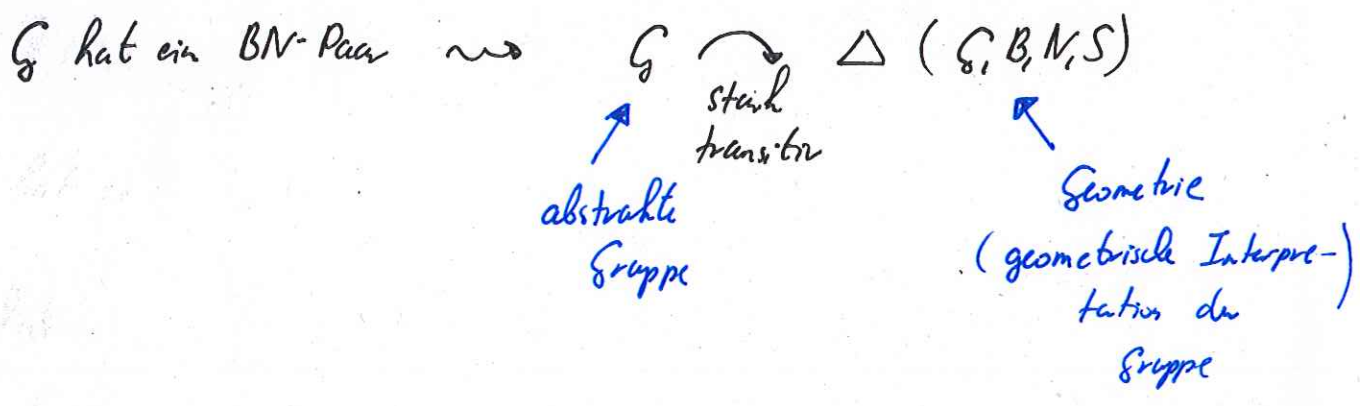 G hat ein BN-Paar ⇝ G ↷ Δ (G, B, N, S)
stark
transitiv
abstrakte
Gruppe
Geometrie
(geometrische Interpre-
tation der
Gruppe)